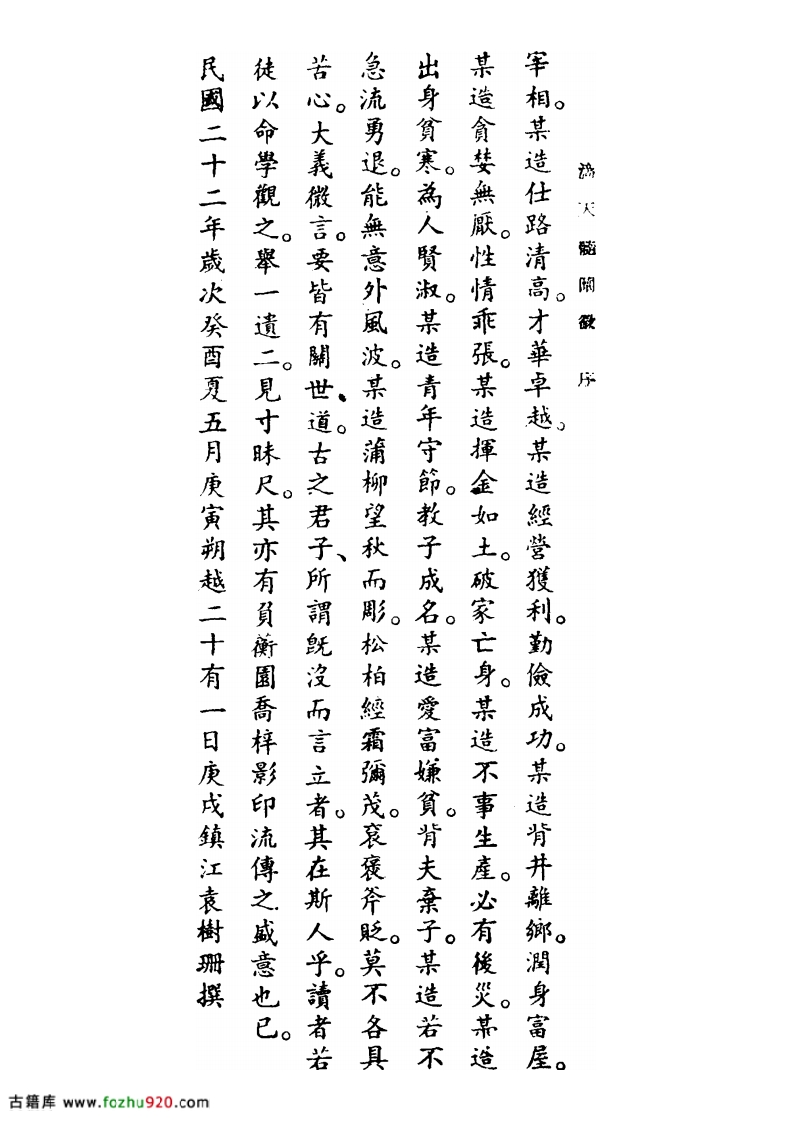 滴天髓闡微 序
宰相。某造仕路清高。才華卓越。某造經營獲利。勤儉成功。某造背井離鄉。潤身富屋。
某造貪婪無厭。性情乖張。某造揮金如土。破家亡身。某造不事生產。必有後災。某造
出身貧寒。為人賢淑。某造青年守節。教子成名。某造愛富嫌貧。背夫棄子。某造若不
急流勇退。能無意外風波。某造蒲柳望秋而彫。松柏經霜彌茂。袞褒斧貶。莫不各具
苦心。大義微言。要皆有關世道。古之君子、所謂既沒而言立者。其在斯人乎。讀者若
徒以命學觀之。舉一遺二。見寸昧尺。其亦有負蘅園喬梓影印流傳之盛意也已。
民國二十二年歲次癸酉夏五月庚寅朔越二十有一日庚戌鎮江袁樹珊撰
古籍库 www.fozhu920.com